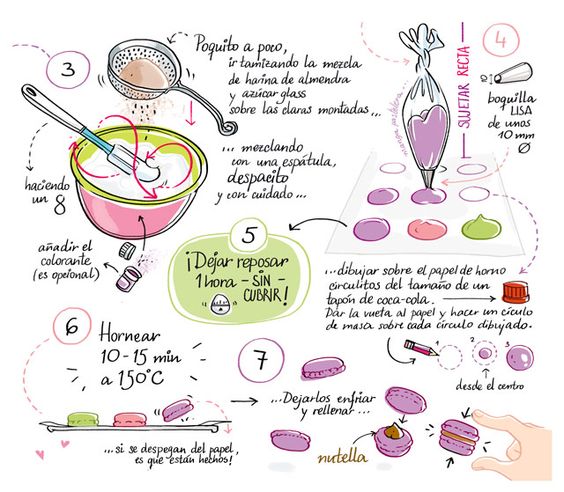 3
Poquito a poco,
ir tamizando la mezcla
de harina de almendra
y azúcar glass
sobre las claras montadas...
... mezclando
con una espátula,
despacito
y con cuidado ...
haciendo
un 8
añadir el
colorante
(es opcional)
4
SUJETAR RECTA
manga pastelera
boquilla
LISA
de unos
10 mm
Ø
...dibujar sobre el papel de horno
circulitos del tamaño de un
tapón de coca-cola.
Dar la vuelta al papel y hacer un cículo
de masa sobre cada círculo dibujado.
1
2
3
desde el centro
5
¡Dejar reposar
1 hora - SIN -
CUBRIR!
6
Hornear
10 - 15 min
a 150°C
...si se despegan del papel,
es que están hechos!
7
...Dejarlos enfriar
y rellenar ...
nutella